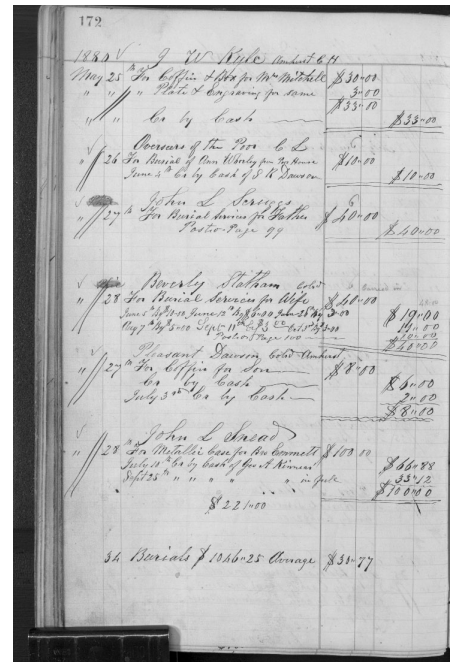 172
1880 J W Kyle Amherst C H
May 25 " For Coffin & Box for Mrs Mitchell $30"00
" " " Plate & Engraving for same 3"00
$33"00
" " Cr by Cash $33"00
Overseers of the Poor C L
" 26 For Burial of Ann from Poor House $10"00
June 4th Cr by Cash of S R Dawson $10"00
John L Scruggs
" 27 th For Burial Service for Father $40"00
Posted Page 99 $40"00
Beverly Statham Cold
" 28 For Burial Services for Wife $40"00
$19"00
Posted Page 100 $40"00
Pleasant Dawson, Cold Amherst
" 27 th For Coffin for Son $8"00
Cr by Cash $6"00
July 3rd Cr by Cash 2"00
$8"00
John L Snead
" 28 " For Metallic Case for Emmett $100"00
July 10th Cr by Cash of Geo A $66"88
Sept 25th " " " " " in full 33"12
$100"00
$221"00
34 Burials $1046"25 Average $30"77